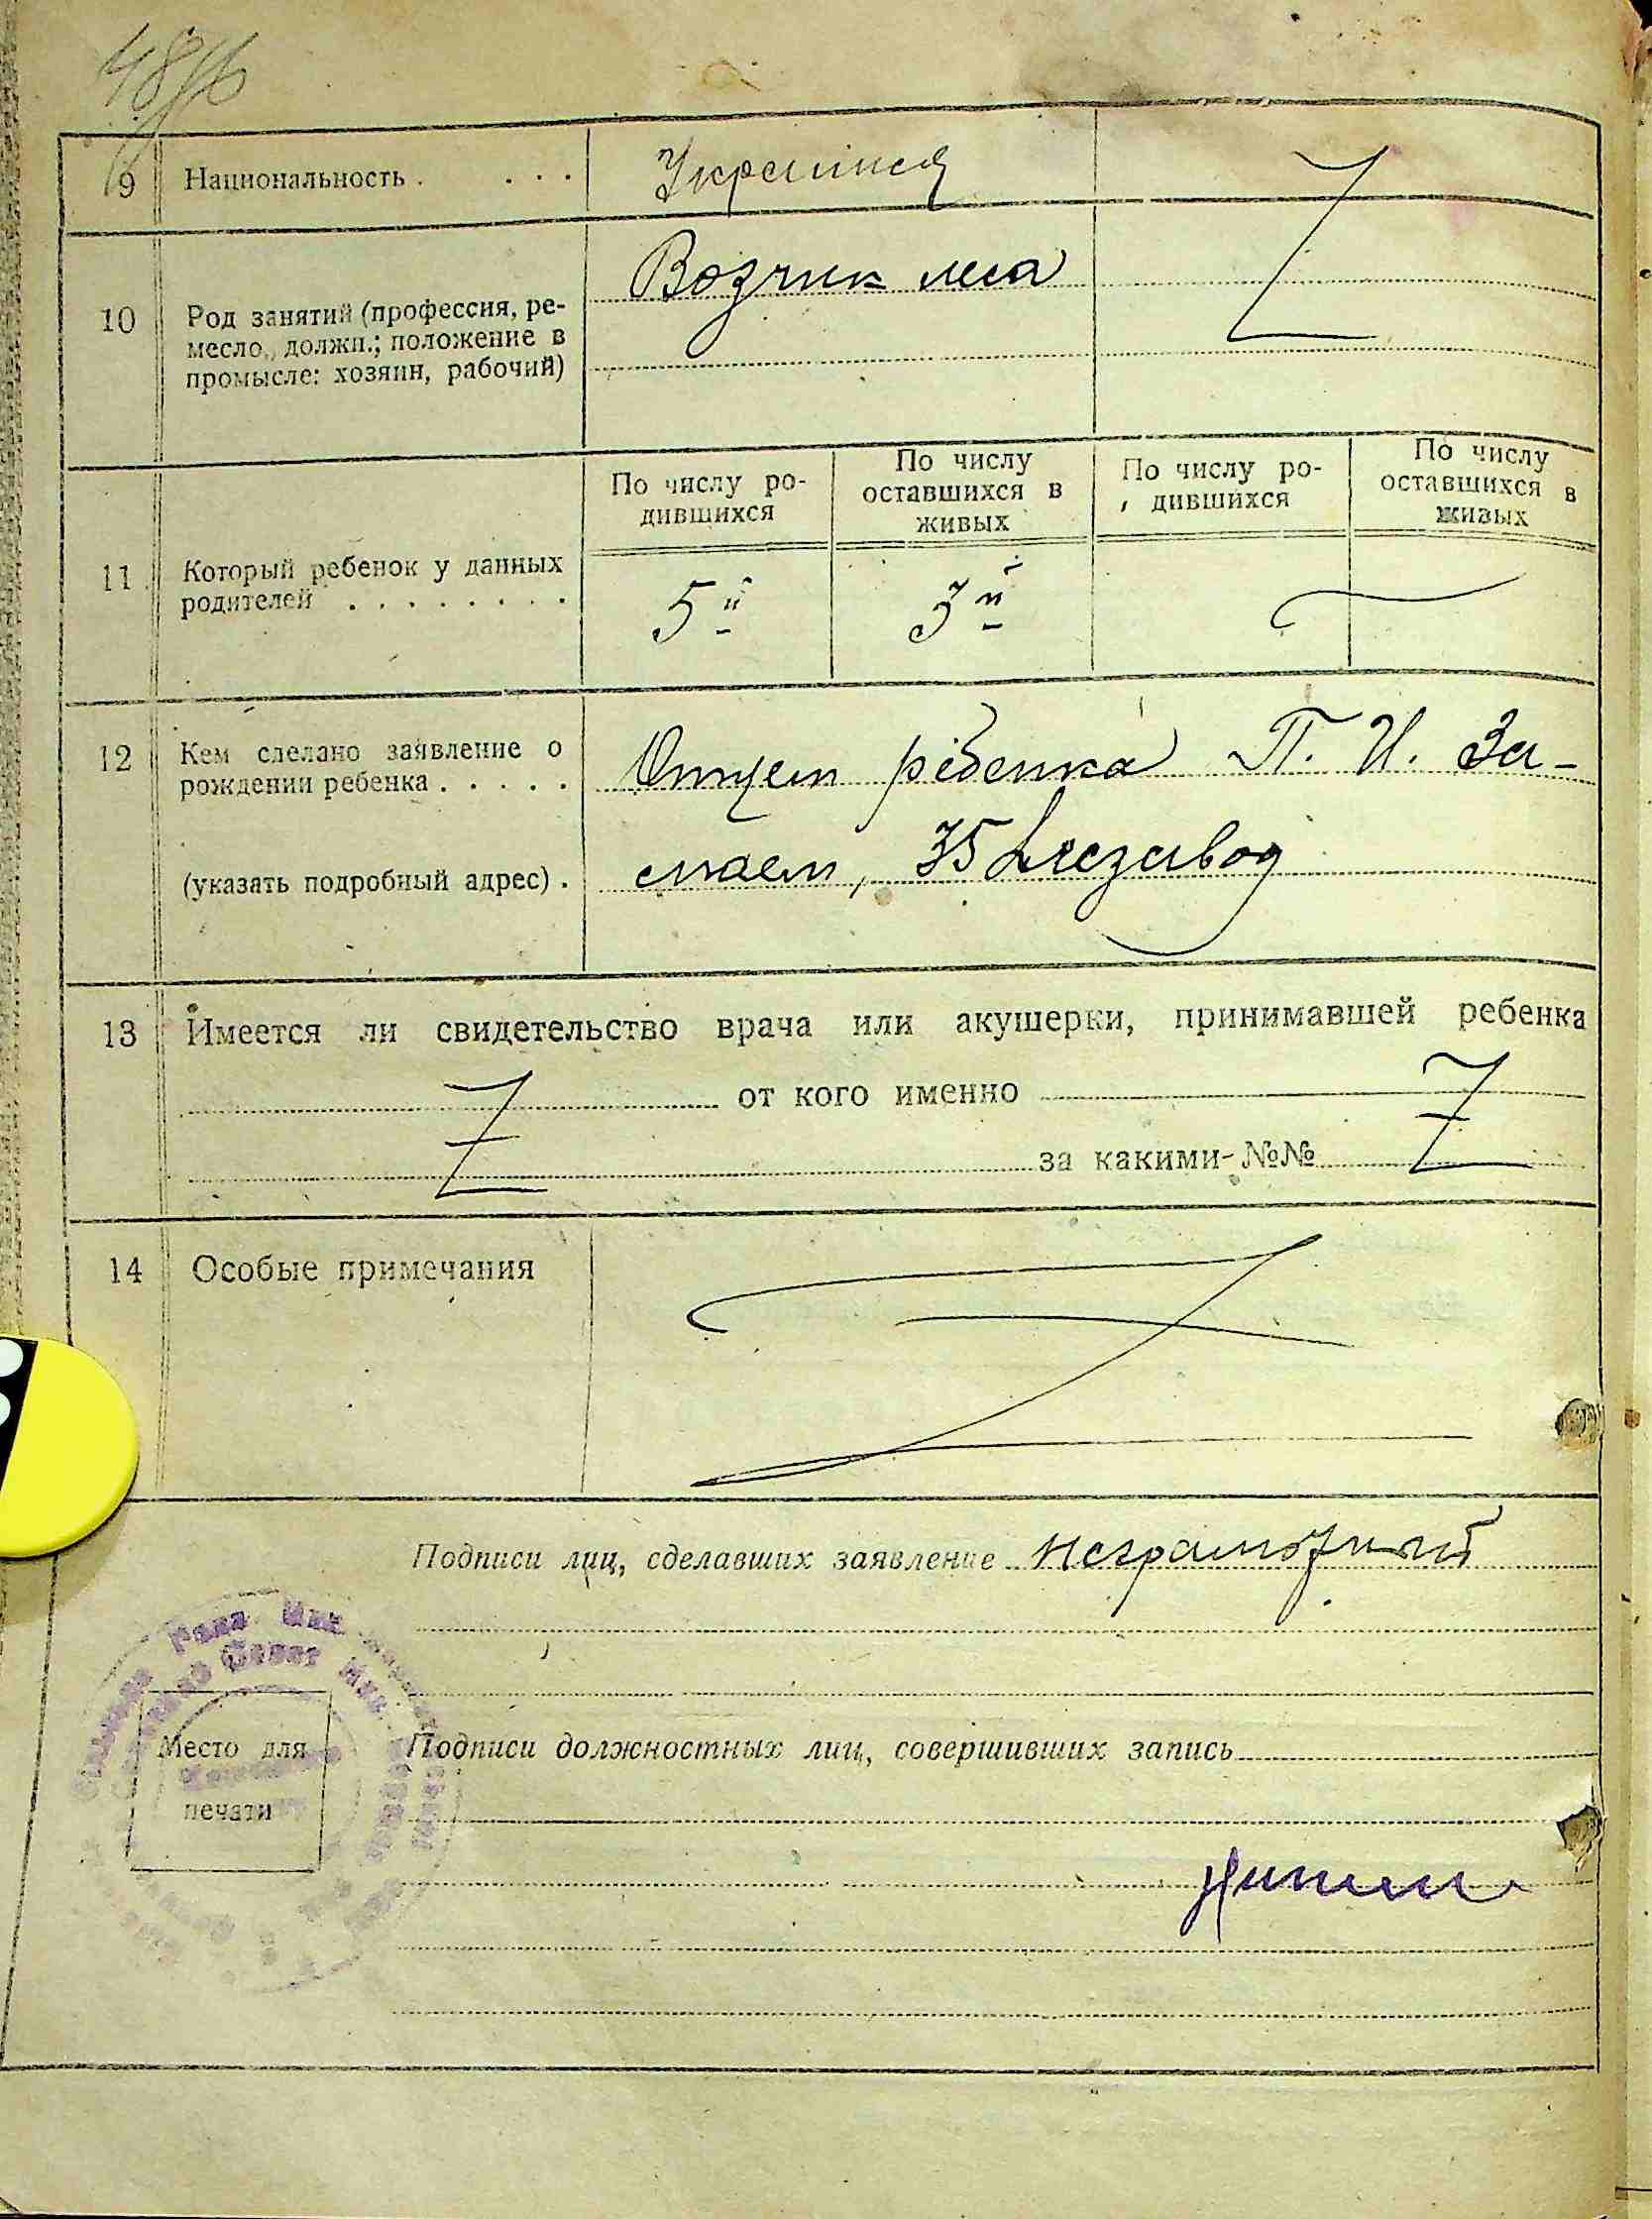 9 Национальность . . . .
10 Род занятий (профессия, ре-
месло, должн.; положение в
промысле: хозяин, рабочий)
Возчик леса
11 Который ребенок у данных
родителей . . . . . . . .
По числу ро-
дившихся
По числу
оставшихся в
живых
По числу ро-
дившихся
По числу
оставшихся в
живых
5й
3й
12 Кем сделано заявление о
рождении ребенка . . . . .
(указать подробный адрес) .
Отцем рёбенка П. И. За-
35 Лесзавод
13 Имеется ли свидетельство врача или акушерки, принимавшей ребенка
от кого именно
за какими-№№
14 Особые примечания
Подписи лиц, сделавших заявление неграмотный
Место для
печати
Подписи должностных лиц, совершивших запись